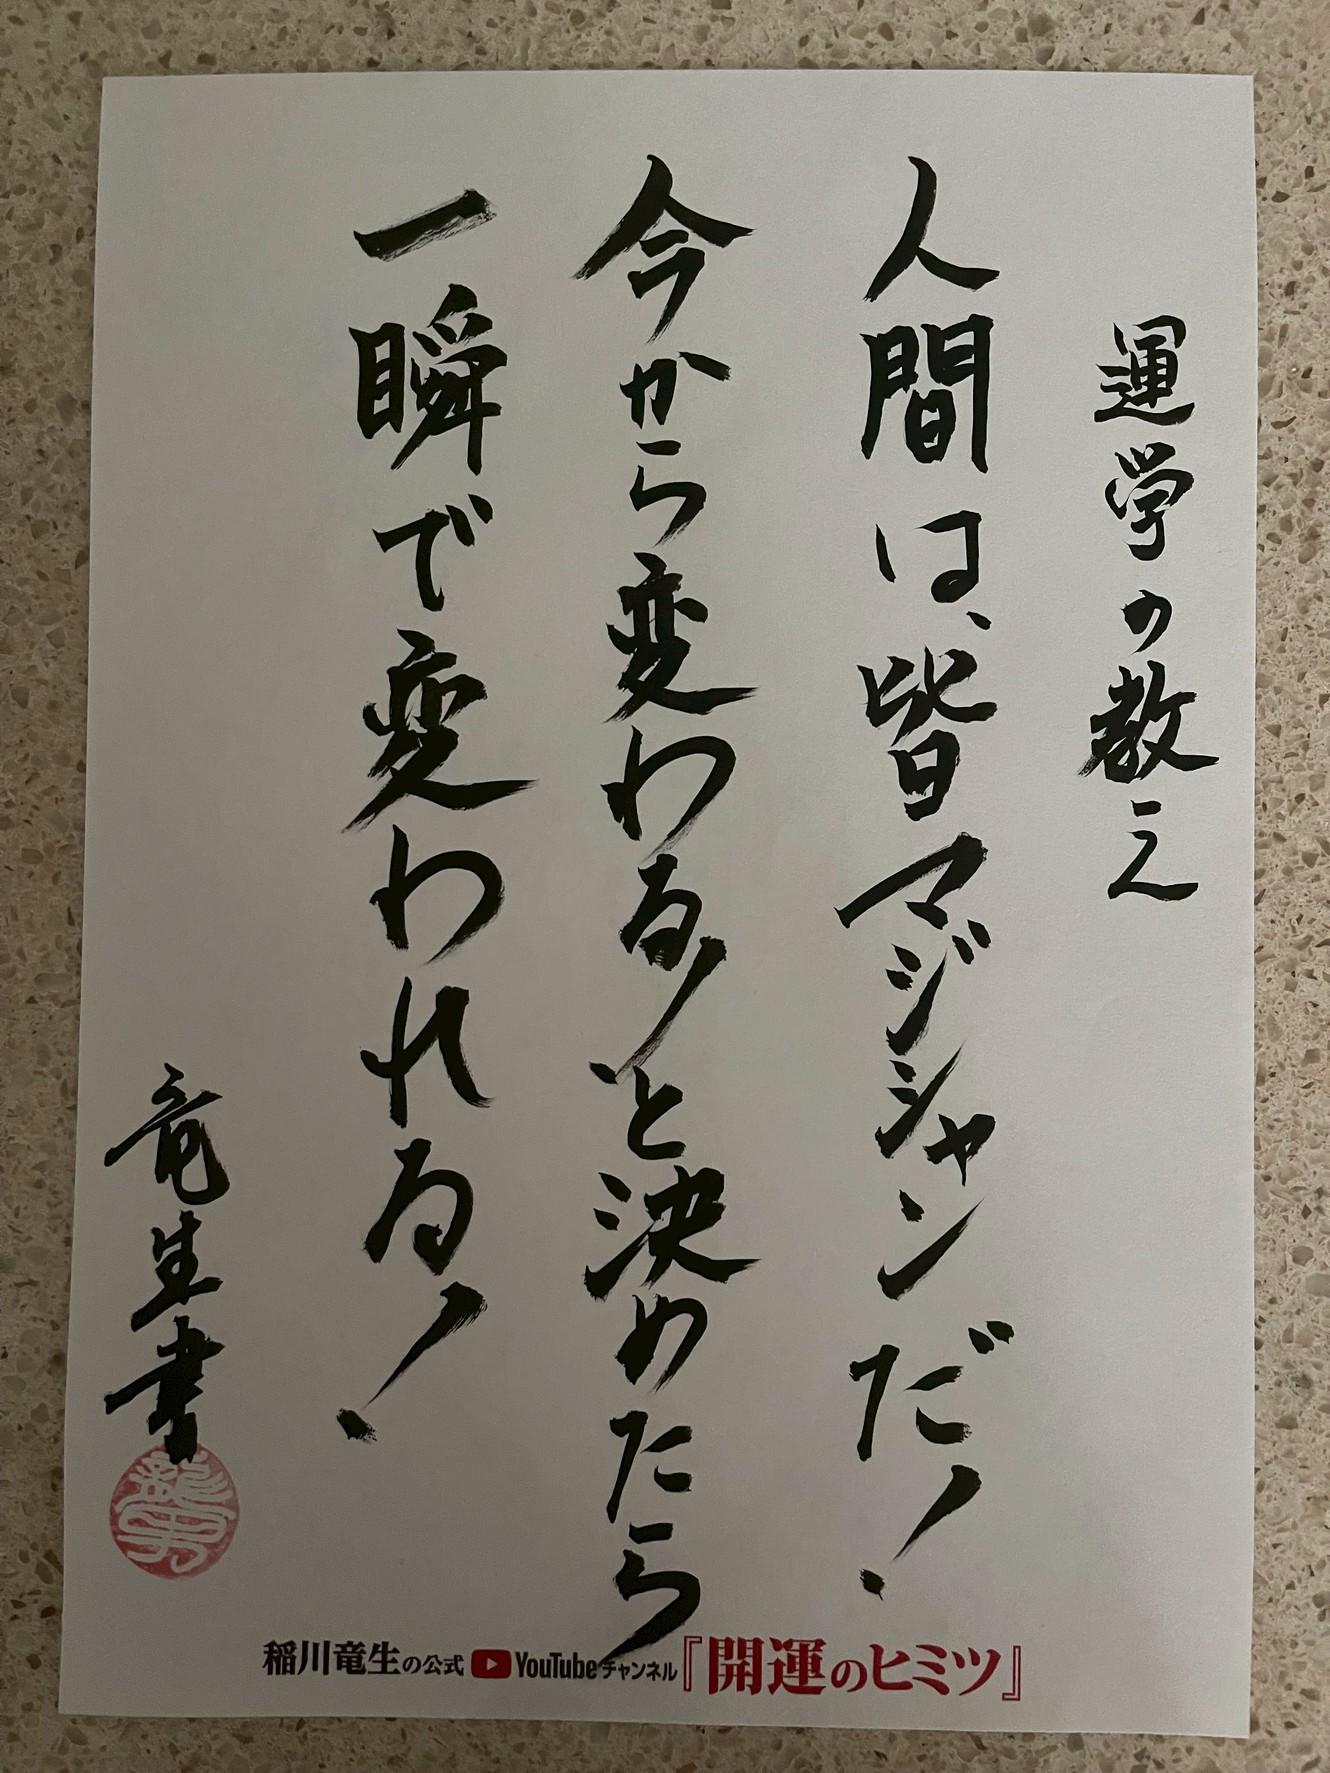 運学の教え
人間は、皆マジシャンだ!
今から変わる!と決めたら
一瞬で変われる!
竜生書
稲川竜生の公式 YouTubeチャンネル『開運のヒミツ』